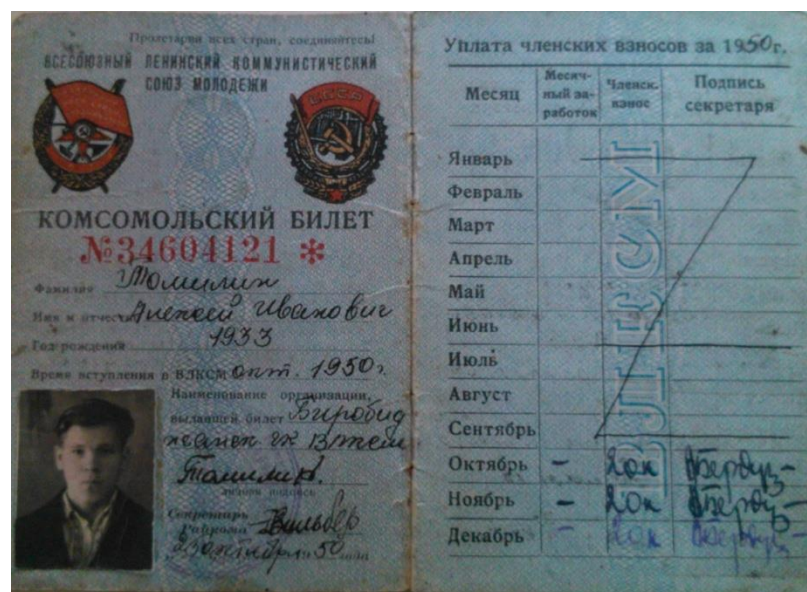 Пролетарии всех стран, соединяйтесь!
ВСЕСОЮЗНЫЙ ЛЕНИНСКИЙ КОММУНИСТИЧЕСКИЙ
СОЮЗ МОЛОДЕЖИ
СССР
КОМСОМОЛЬСКИЙ БИЛЕТ
№34604121 *
Фамилия Томилин
Имя и отчество Алексей Иванович
Год рождения 1933
Время вступления в ВЛКСМ окт. 1950г.
Наименование организации,
выдавшей билет Биробид
жанск ГК ВЛКСМ
Томилин.
личная подпись
Секретарь
Райкома
октября 1950 года
Уплата членских взносов за 1950г.
Месяц
Месяч-
ный за-
работок
Членск.
взнос
Подпись
секретаря
Январь
Февраль
Март
Апрель
Май
Июнь
Июль
Август
Сентябрь
Октябрь – 20к
Ноябрь – 20к
Декабрь – 20к
ВЛКСМ